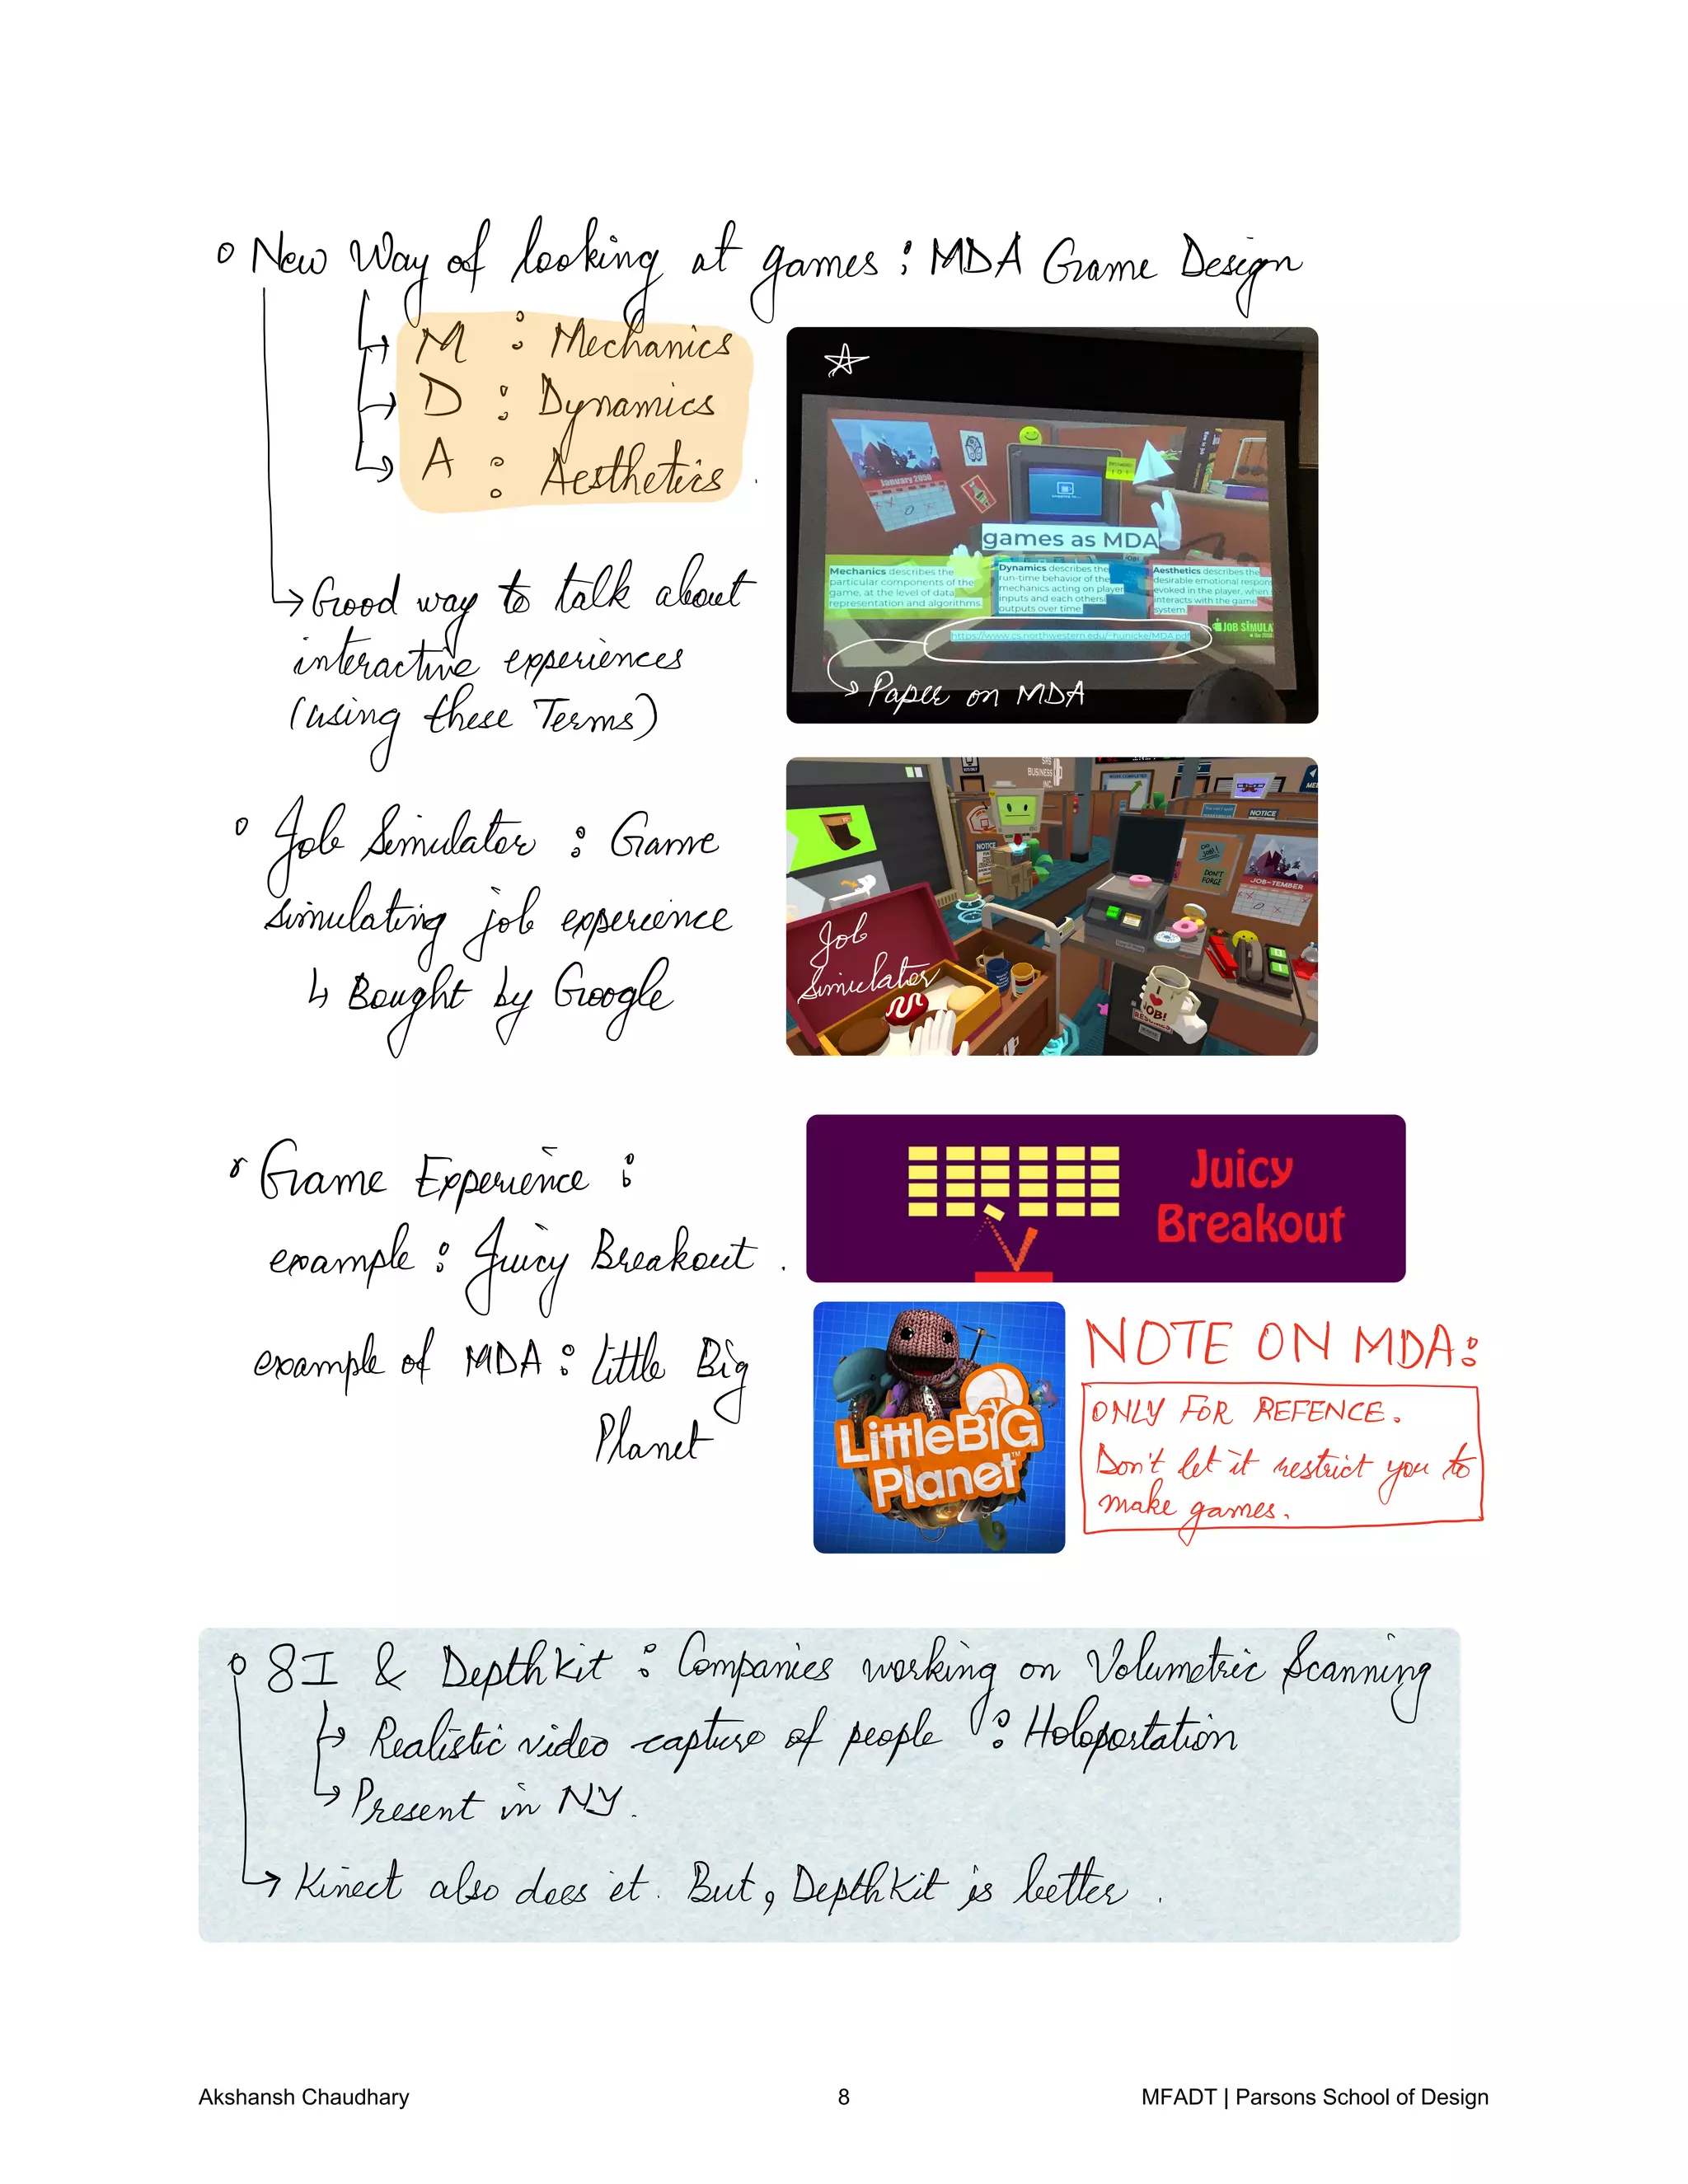 New Way of looking at games : MDA Game Design
M : Mechanics
D : Dynamics
A : Aesthetics.
Good way to talk about
interactive experiences
(using these Terms)
January 2050
games as MDA
Mechanics describes the
particular components of the
game, at the level of data
representation and algorithms.
Dynamics describes the
run-time behavior of the
mechanics acting on player
inputs and each others
outputs over time.
Aesthetics describes the
desirable emotional respons
evoked in the player, when
interacts with the game
system.
JOB SIMULA
https://www.cs.northwestern.edu/~hunicke/MDA.pdf
Paper on MDA
Job Simulator : Game
simulating job experience
Bought by Google
SRS
BUSINESS
INC.
WORK COMPLETED
NOTICE
NOTICE
DO
JOB!
DON'T
FORGE
JOB-TEMBER
I
JOB!
Job
Simulator
Game Experience :
example : Juicy Breakout.
Juicy
Breakout
example of MDA : Little Big
Planet
LittleBIG
Planet™
NOTE ON MDA:
ONLY FOR REFENCE.
Don't let it restrict you to
make games.
8I & DepthKit : Companies working on Volumetric Scanning
Realistic video capture of people : Holoportation
Present in NY.
Kinect also does it. But, DepthKit is better.
Akshansh Chaudhary
8
MFADT | Parsons School of Design